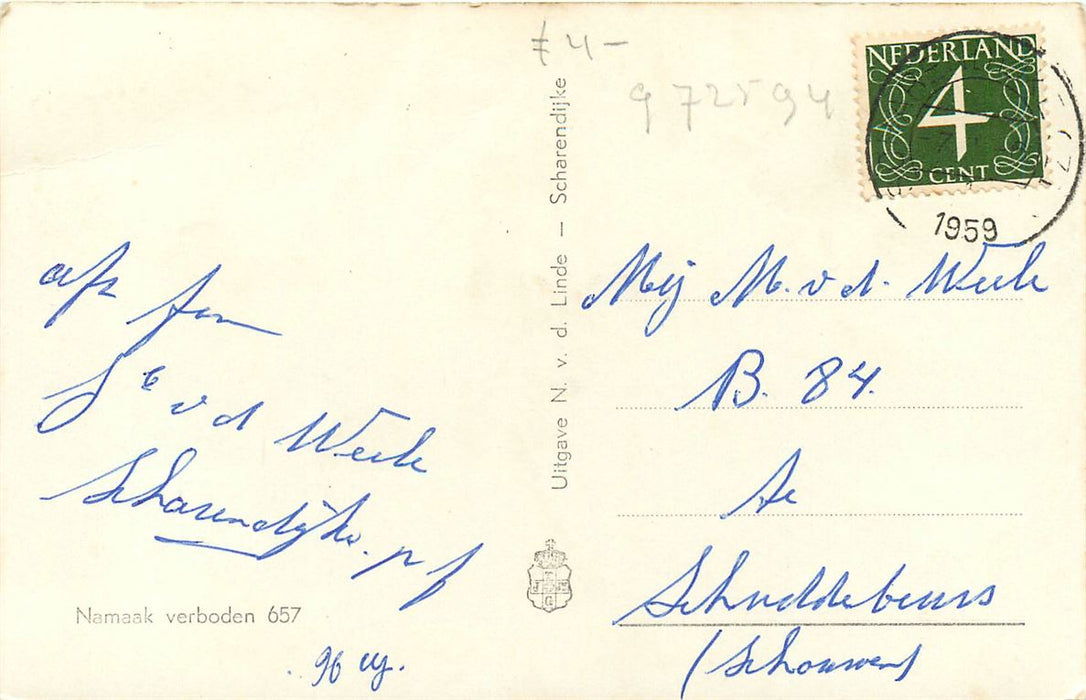 € 4-
972594
NEDERLAND
4
CENT
1959
afz fam
v d Weele
Scharendijke. p f
Namaak verboden 657
96
Uitgave N. v. d. Linde — Scharendijke
Mej M. v. d. Weele
B. 84.
Te
Schuddebeurs
(Schouwen)